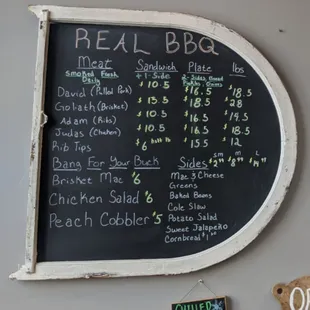 REAL BBQ
Meat Sandwich Plate lbs
Smoked Fresh Daily + 1 Side 2 Sides Bread
David (Pulled Pork) $10.5 $16.5 $18.5
Goliath (Brisket) $13.5 $18.5 $28
Adam (Ribs) $10.5 $16.5 $14.5
Judas (Chicken) $10.5 $16.5 $18.5
Rib Tips $6 Half lb $15.5 $12
Bang For Your Buck Sides SM M L
Brisket Mac $6
Chicken Salad $6
Peach Cobbler $5
Mac & Cheese
Greens
Baked Beans
Cole Slaw
Potato Salad
Sweet Jalapeño
Cornbread $1